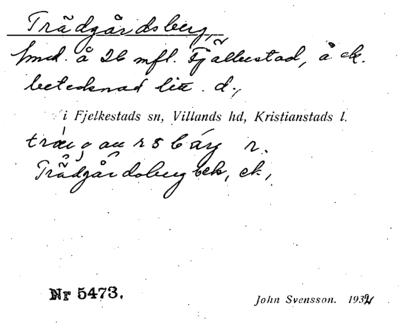 Trädgårdsberg,
hmd. å 26 mfl. Fjälkestad, å ek.
betecknad litt. d.,
i Fjelkestads sn, Villands hd, Kristianstads l.
r.
Trädgårdsberg ek, ek.,
Nr 5473.
John Svensson. 1932